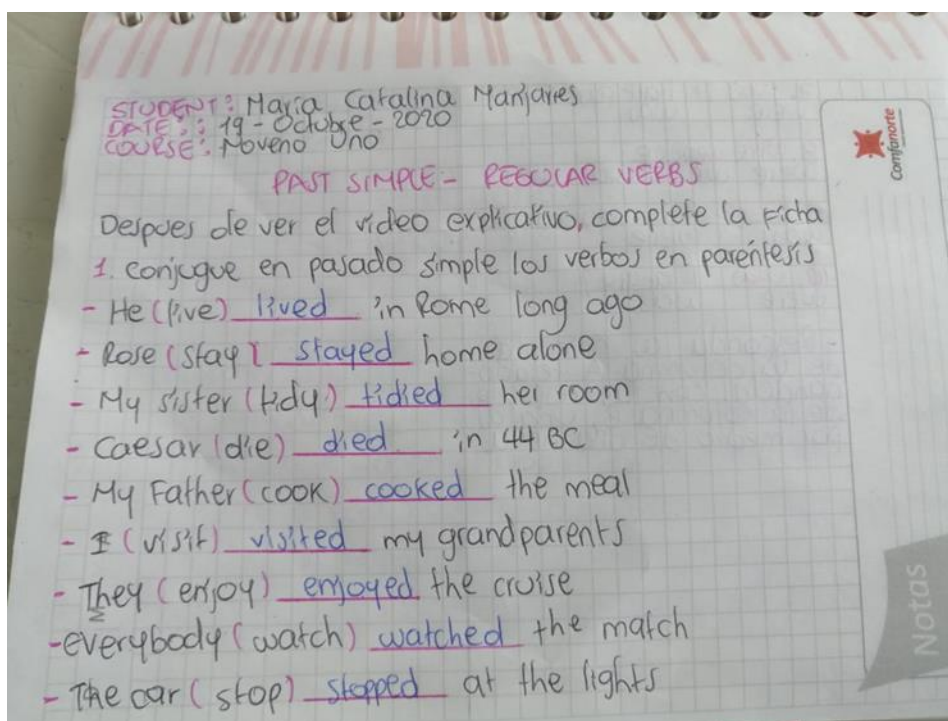 STUDENT: María Catalina Manjarres
DATE:: 19-Octubre-2020
COURSE: Noveno Uno
PAST SIMPLE - REGULAR VERBS
Despues de ver el video explicativo, complete la Ficha
1. conjugue en pasado simple los verbos en paréntesis
- He (live) lived in Rome long ago
- Rose (stay) stayed home alone
- My sister (tidy) tidied her room
- Caesar (die) died in 44 BC
- My Father (cook) cooked the meal
- I (visit) visited my grandparents
- They (enjoy) enjoyed the cruise
- everybody (watch) watched the match
- The car (stop) stopped at the lights
Comfanorte
Notas